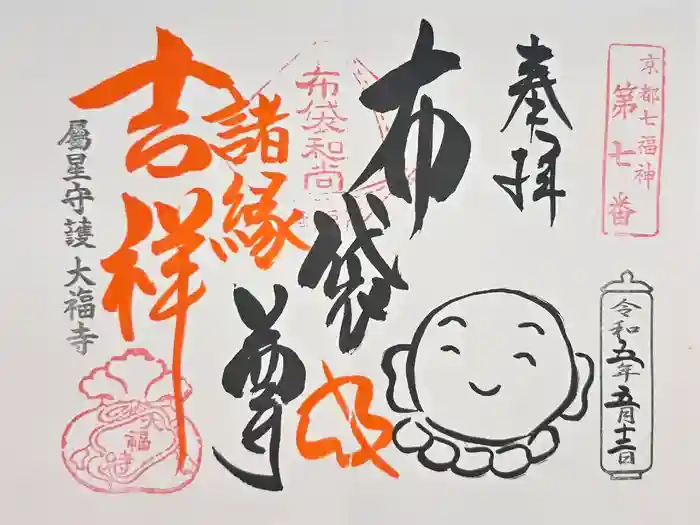 京都七福神
第七番
奉拝
令和五年五月十二日
布袋尊
布袋和尚
諸縁
吉祥
屬星守護 大福寺
大福寺